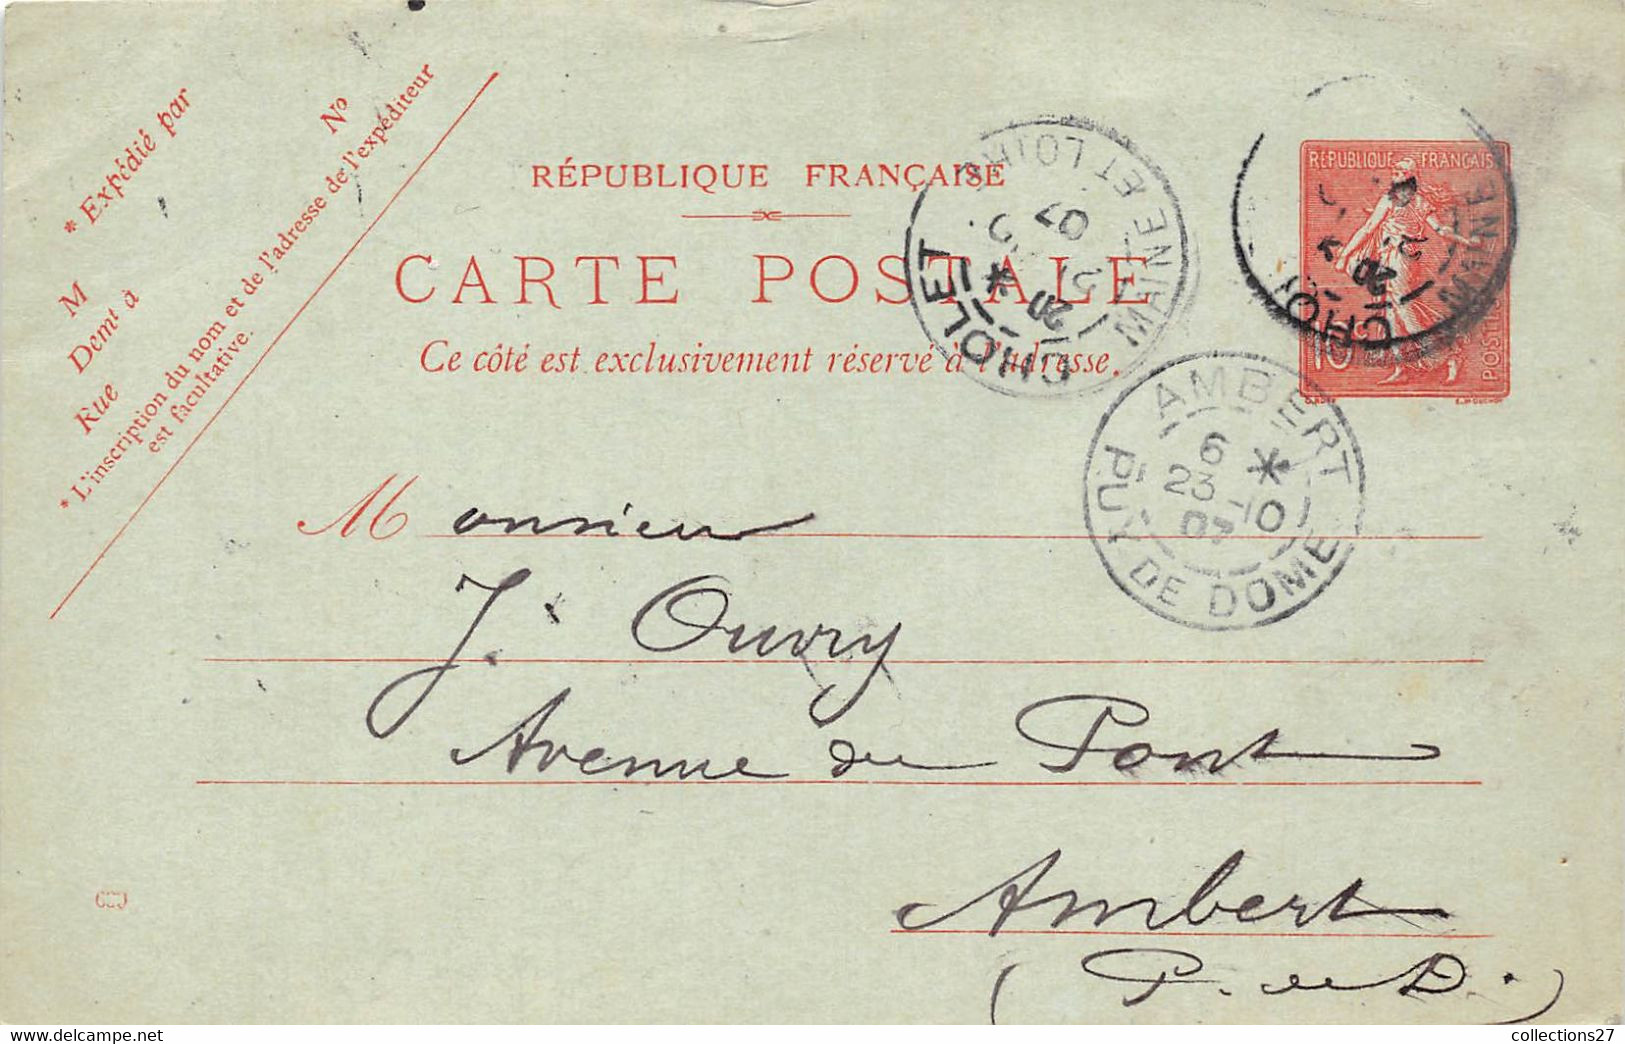 * Expédié par
N°
M
Demt à
Rue
* L'inscription du nom et de l'adresse de l'expéditeur
est facultative.
RÉPUBLIQUE FRANÇAISE
CARTE POSTALE
Ce côté est exclusivement réservé à l'adresse.
CHOLET
MAINE ET LOIRE
20 *
07
RÉPUBLIQUE FRANÇAISE
10
POSTES
CHO
MAINE
20
AMBERT
6 *
23 -10
07
PUY DE DOME
Monsieur
J. Ouvry
Avenue du Pont
Ambert
(P. de D.)
collections27